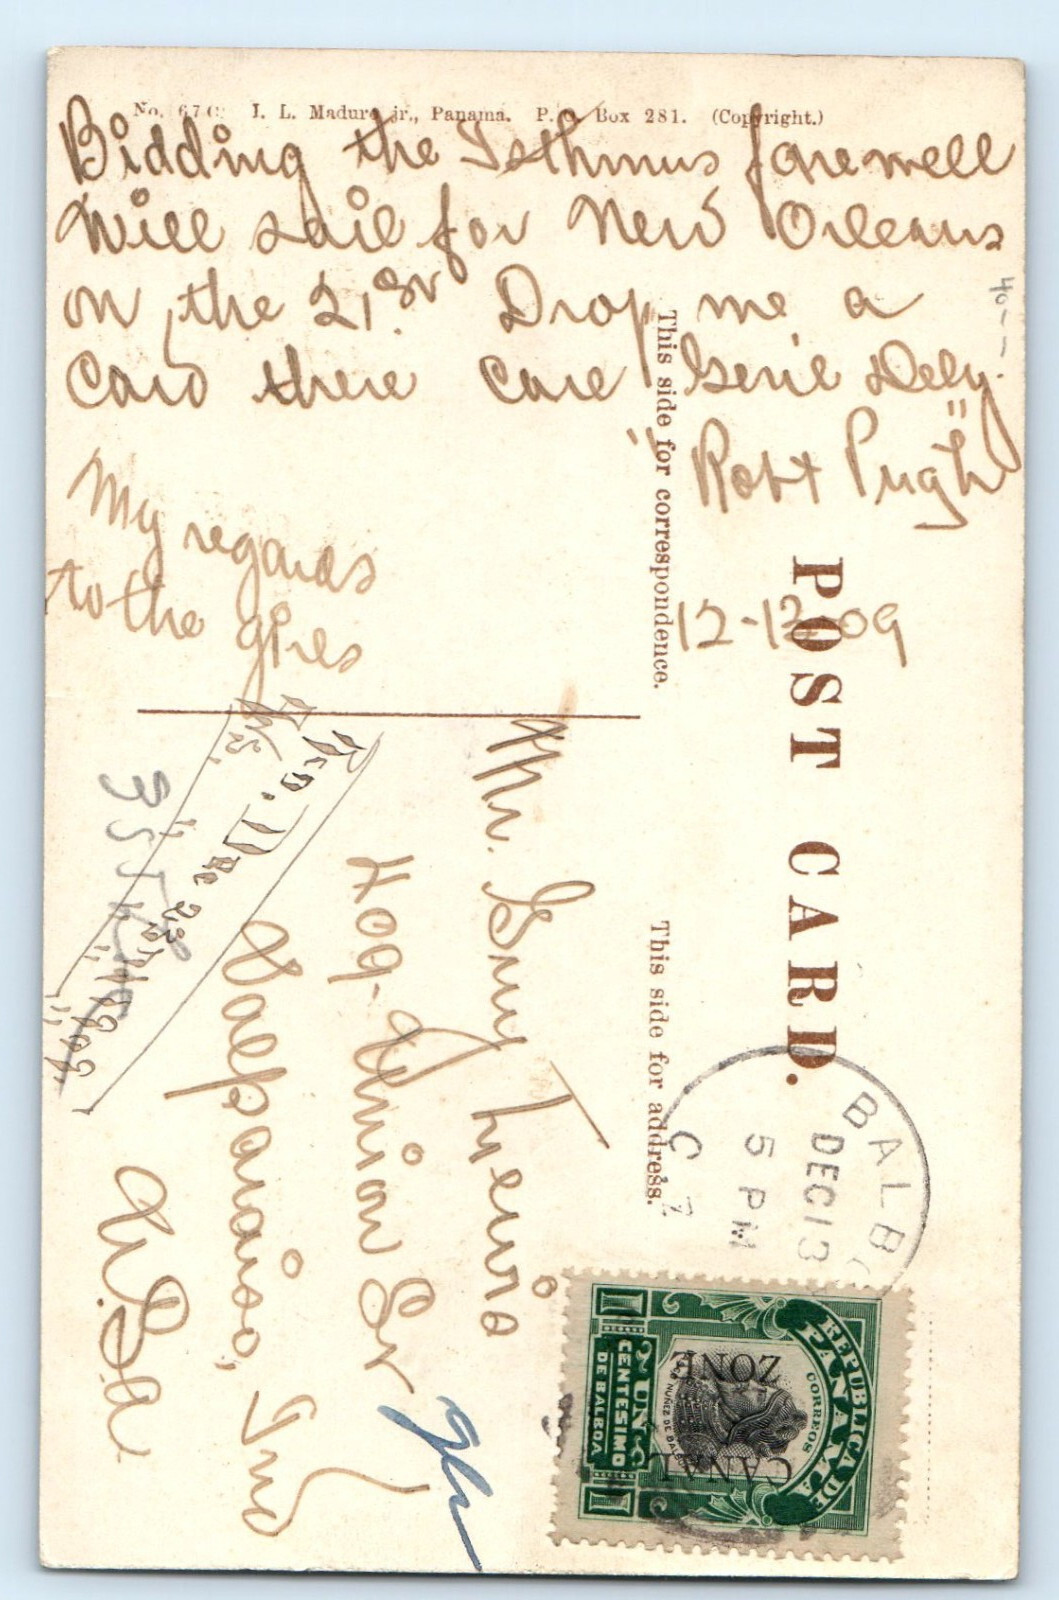 No. 67 C. I. L. Maduro jr., Panama. P. O. Box 281. (Copyright.)
Bidding the Isthmus farewell
Will sail for New Orleans
on the 21st Drop me a
Card there Care Gen'l Dely.
"Robt Pugh"
My regards
to the girls
12-13-09
This side for correspondence.
POST CARD.
This side for address.
Mr. Guy Lewis
409 - Union St
Valparaiso, Ind
U.S.a
Rec. Dec 23rd 1909
BALBO
DEC 13
5 PM
C Z
REPUBLICA DE PANAMA
CORREOS
CANAL ZONE
NUÑEZ DE BALBOA
1 UN CENTESIMO 1
DE BALBOA
40--